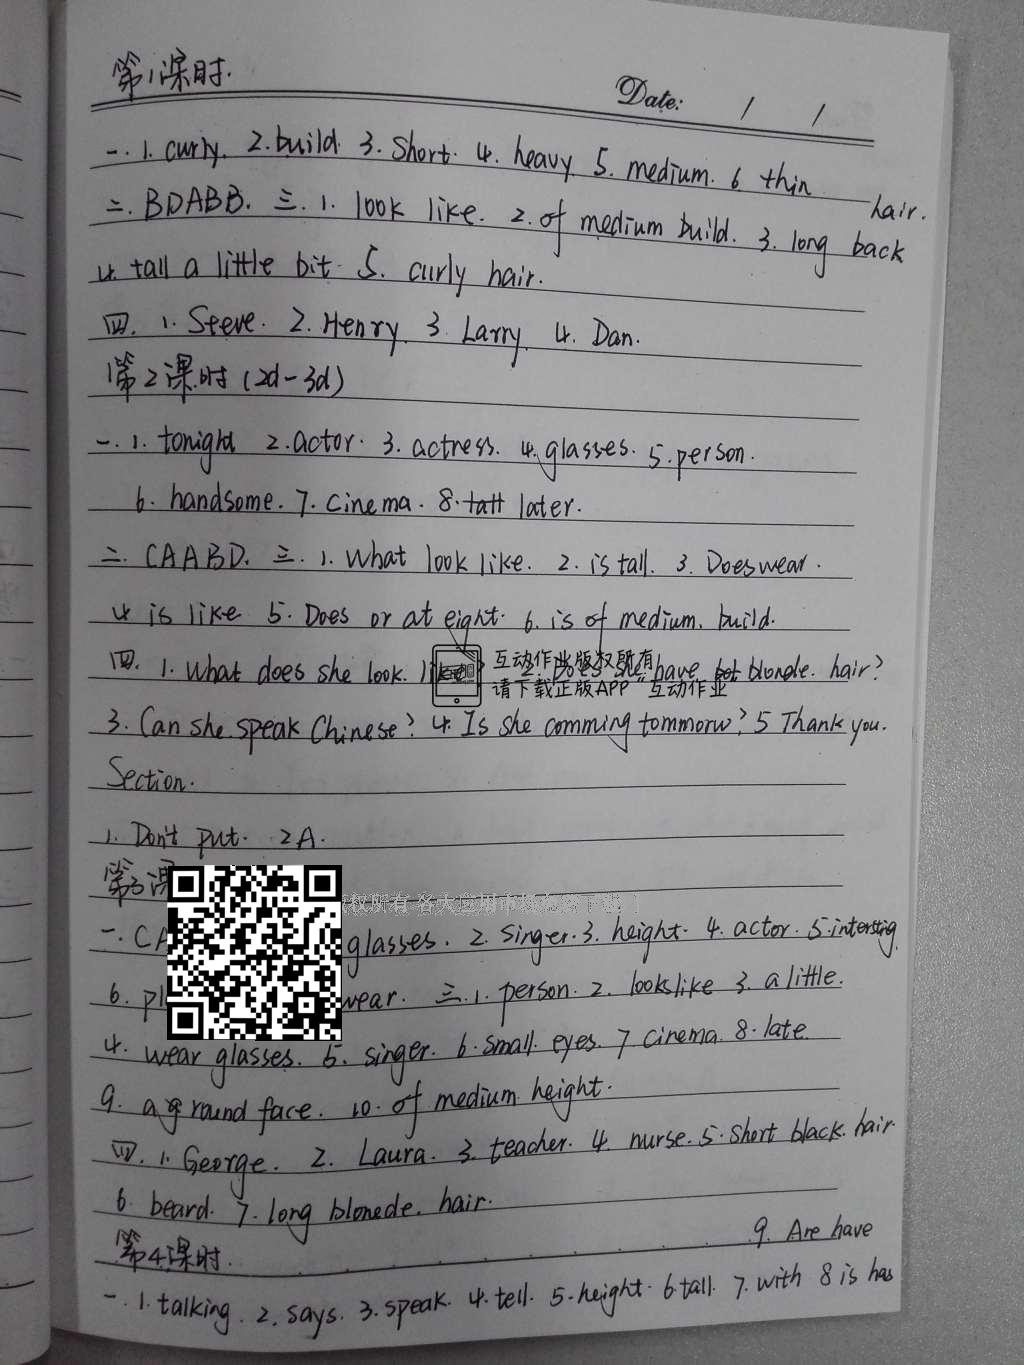 第1课时.
Date: / /
一. 1. curly. 2. build. 3. short. 4. heavy. 5. medium. 6. thin
二. BDABB. 三. 1. look like. 2. of medium build. 3. long back hair.
4. tall a little bit. 5. curly hair.
四. 1. Steve. 2. Henry. 3. Larry. 4. Dan.
第2课时(2d-3d)
一. 1. tonight 2. actor. 3. actress. 4. glasses. 5. person.
6. handsome. 7. cinema. 8. later.
二. CAABD. 三. 1. What look like. 2. is tall. 3. Does wear.
4. is like 5. Does or at eight. 6. is of medium. build.
四. 1. What does she look. like? 2. Does she have blonde. hair?
互动作业版权所有
请下载正版APP "互动作业
3. Can she speak Chinese? 4. Is she comming tommorw? 5 Thank you.
Section.
1. Don't put. 2 A.
第3课
版权所有 各大应用市场免费下载
一. CA glasses. 2. singer. 3. height. 4. actor. 5. intersting
6. pl wear. 三. 1. person. 2. looks like 3. a little.
4. wear glasses. 5. singer. 6. small eyes. 7. cinema. 8. late.
9. a round face. 10. of medium height.
四. 1. George. 2. Laura. 3. teacher. 4. nurse. 5. short black. hair.
6. beard. 7. long blonede. hair.
第4课时. 9. Are have
一. 1. talking. 2. says. 3. speak. 4. tell. 5. height. 6. tall. 7. with 8 is has